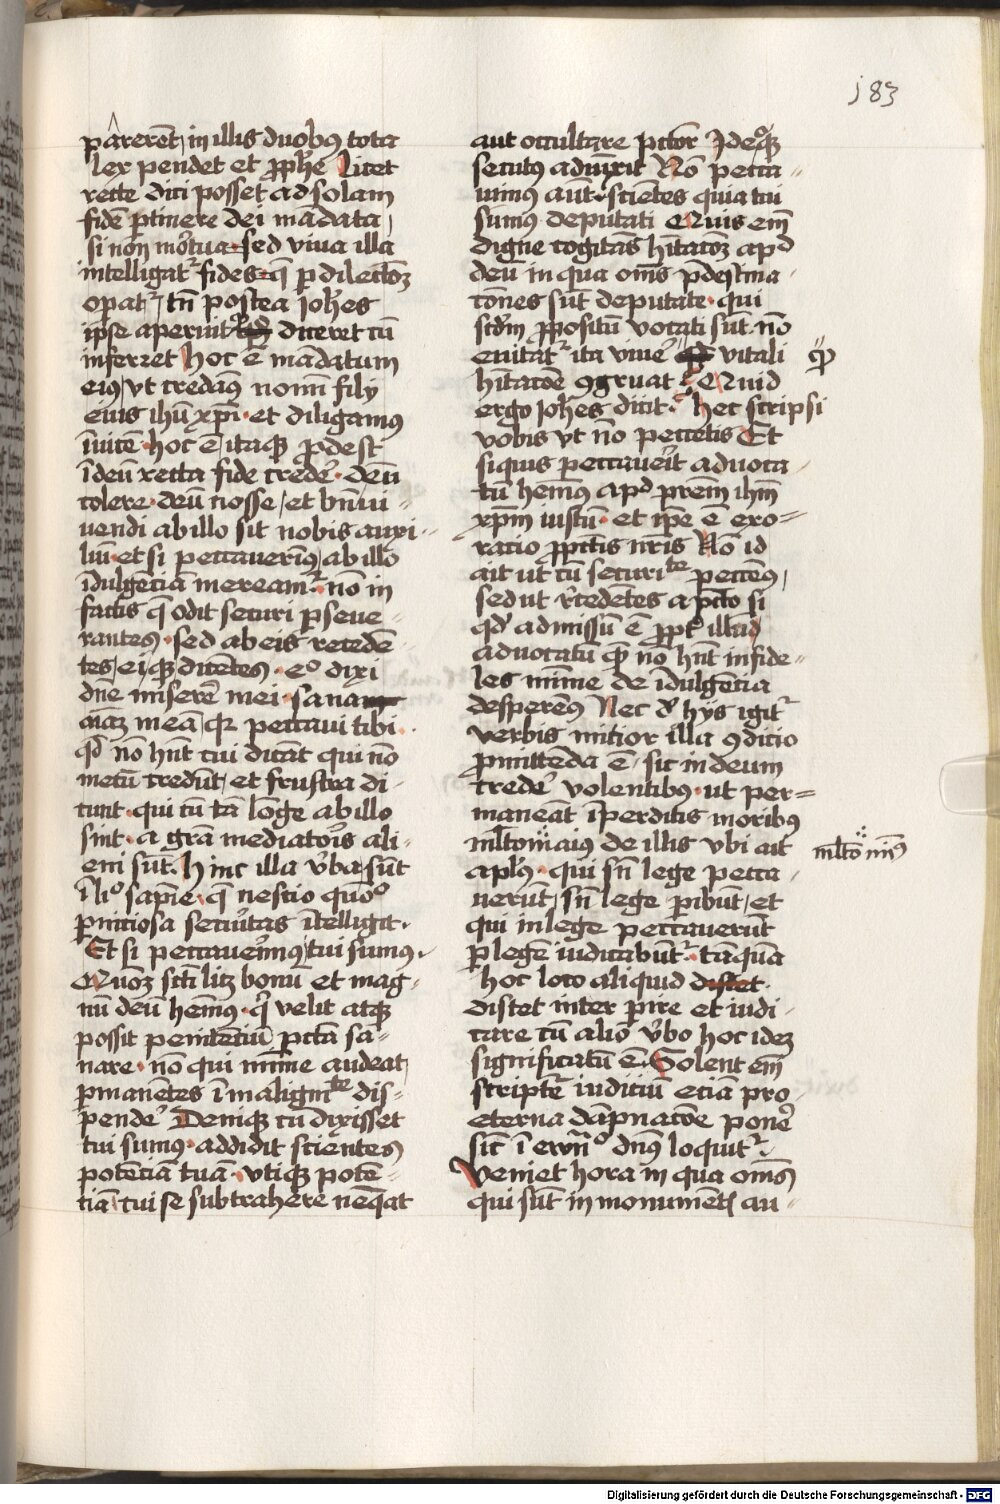 183
parerēt in illis duobꝰ tota
lex pendet et ꝓphe Licet
recte dici posset ad solam
fidē ꝑtinere dei mādata
si non mortua sed viua illa
intelligatʳ fides q̄ ꝑ dilectōꝫ
opatʳ tn̄ postea Joh̄es
ip̄e aperuit diceret cū
inferret hoc ē mādatum
eiꝰ vt credamꝰ nomī filij
euis ih̄u xp̄i et diligamus
īuicē hoc ē itaqꝫ ꝓdest
ī deū recta fide credeˀ deū
colere deū nosse et bn̄ ui
vendi ab illo sit nobis auxi
liū et si peccauerimꝰ ab illo
īdulgēciā mereamʳ nō in
factis q̄ odit securi ꝑseue
rantes sed ab eis recedē
tes ei qꝫ dicētes eº dixi
dn̄e miserē mei sana
aīaꝫ meā qꝛ peccaui tibi
qd̄ nō hn̄t cui dicāt qui nō
in eū credūt et frustra di
cunt qui cū tā lōge ab illo
sint a gr̄a mediatoīs ali
eni sūt. Hinc illa v̄ba sūt
ī liº sapīe q̄ nescio quōº
ꝑnitiosa secuītas ītelligit
Et si peccaueīmꝰ tui sumꝰ
Quōꝫ sc̄ti licꝫ bonū et mag
nū deū hēmꝰ q̄ velit atqꝫ
possit penitēciū pctā sa
nare nō qui mīme audeat
ꝑmanētes ī malignitᵗᵉ dis
ꝑendeˀ Deniqꝫ cū dixisset
tui sumꝰ addidit scientes
potēciā tuā vtiqꝫ potē
tiā cui se subtrahere neq̄at
aut occultare pctor Jdeoqꝫ
secutus adiūxit Nō pecca
uimus aut sciētes quia tui
sumus deputati Quis em̄
digne cogitās hītacōꝫ apd̄
deū in qua oms p̄destina
cōnes sūt deputate qui
scd̄m ꝓpositū vocati sūt nō
enitatʳ ita viueˀ vitali
ꝙ
hītacōe ꝯgruat Quid
ergo Joh̄es dicit hec scripsi
vobis vt nō peccetis Et
siquis peccaueīt aduoca
tū hēmꝰ apd̄ prēm ih̄m
xp̄m iustū et ip̄e ē exo
racio ꝓ pctīs nr̄is Nō id
ait ut cū securitᵗᵉ peccemꝰ
sed ut recedētes a pcto si
qd̄ admissū ē ꝓptˀ illud
aduocatū quē nō hn̄t infide
les mīme de īdulgēcia
desperemꝰ Nec d̄ hijs igitʳ
verbis mitior illa ꝯdicio
ꝓmittenda ē sic in deum
credeˀ volentibꝰ ut per
maneāt ī perditis moribꝰ
ml̄tom aiꝰ de illis vbi ait
ml̄tō miꝰ
aplꝰ qui sn̄ lege pecca
uerūt sn̄ lege ꝑibūt et
qui in lege peccauerūt
ꝑ legē iudicabūtʳ tāquā
hoc loco aliquid distet
distet inter ꝑire et iudi
care cū alio v̄bo hoc idꝫ
significatū ē Solent em̄
scriptē iudiciū eciā pro
eterna dāpnacōe poneˀ
sic̄ ī ewn̄º dn̄s loquitʳ
Veniet hora in qua oms
qui sūt in monumētꝭ au
Digitalisierung gefördert durch die Deutsche Forschungsgemeinschaft - DFG